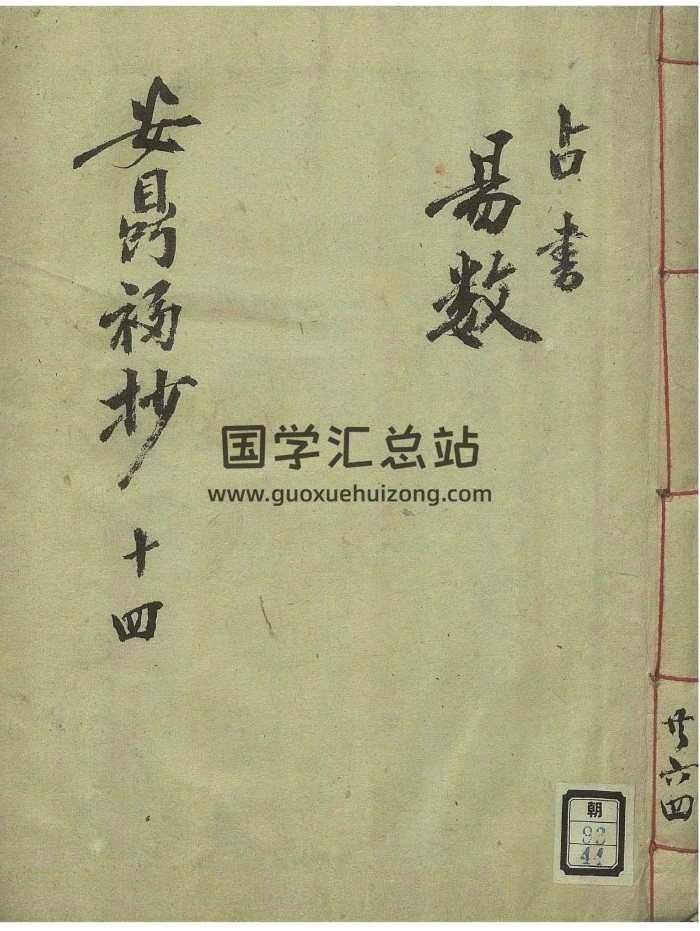 占書
易数
安鼎福抄 十四
国学汇总站
www.guoxuehuizong.com
共六四
朝
44